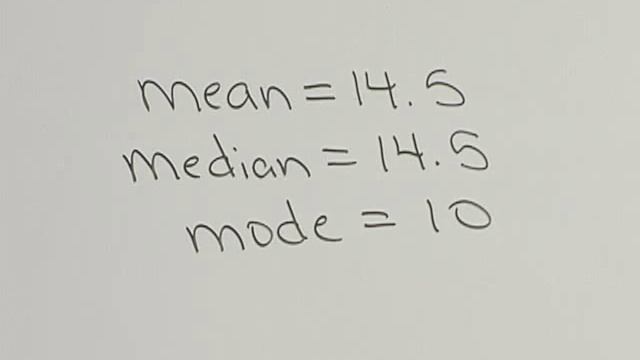 mean = 14.5
median = 14.5
mode = 10